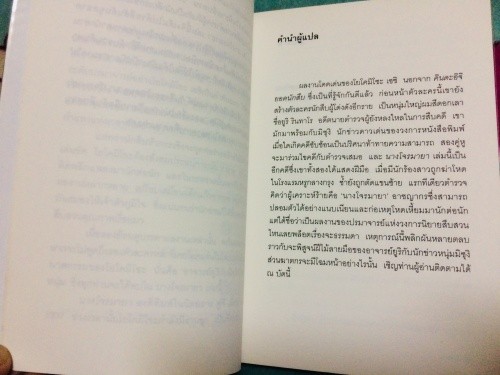 คำนำผู้แปล
ผลงานโดดเด่นของโยโคมิโซะ เซชิ นอกจาก คินดะอิจิ
ยอดนักสืบ ซึ่งเป็นที่รู้จักกันดีแล้ว ก่อนหน้าตัวละครนี้เขายัง
สร้างตัวละครนักสืบผู้โด่งดังอีกราย เป็นหนุ่มใหญ่ผมสีดอกเลา
ชื่อยูริ รินทาโร อดีตนายตำรวจผู้ยังหลงใหลในการสืบคดี เขา
มักมาพร้อมกับมิซุงิ นักข่าวดาวเด่นของวงการหนังสือพิมพ์
เมื่อใดเกิดคดีซับซ้อนเป็นปริศนาท้าทายความสามารถ สองคู่หู
จะมาร่วมไขคดีกับตำรวจเสมอ และ นางโจรมายา เล่มนี้เป็น
อีกคดีซึ่งเขาทั้งสองได้แสดงฝีมือ เมื่อมีนักร้องสาวถูกฆ่าโหด
ในโรงแรมหรูกลางกรุง ซ้ำยังถูกตัดแขนซ้าย แรกทีเดียวตำรวจ
คิดว่าผู้เคราะห์ร้ายคือ 'นางโจรมายา' อาชญากรซึ่งสามารถ
ปลอมตัวได้อย่างแนบเนียนและก่อเหตุโหดเหี้ยมมานักต่อนัก
แต่ได้ชื่อว่าเป็นผลงานของปรมาจารย์แห่งวงการนิยายสืบสวน
ไหนเลยพล็อตเรื่องจะธรรมดา เหตุการณ์นี้พลิกผันหลายตลบ
ราวกับจะพิสูจน์ฝีไม้ลายมือของอาจารย์ยูริกับนักข่าวหนุ่มมิซุงิ
ส่วนฆาตกรจะมีโฉมหน้าอย่างไรนั้น เชิญท่านผู้อ่านติดตามได้
ณ บัดนี้